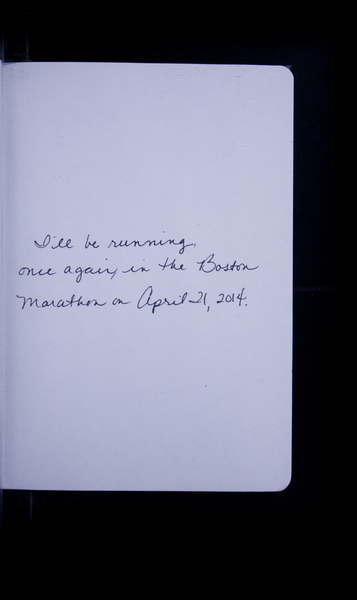 I'll be running,
once again, in the Boston
Marathon on April 21, 2014.